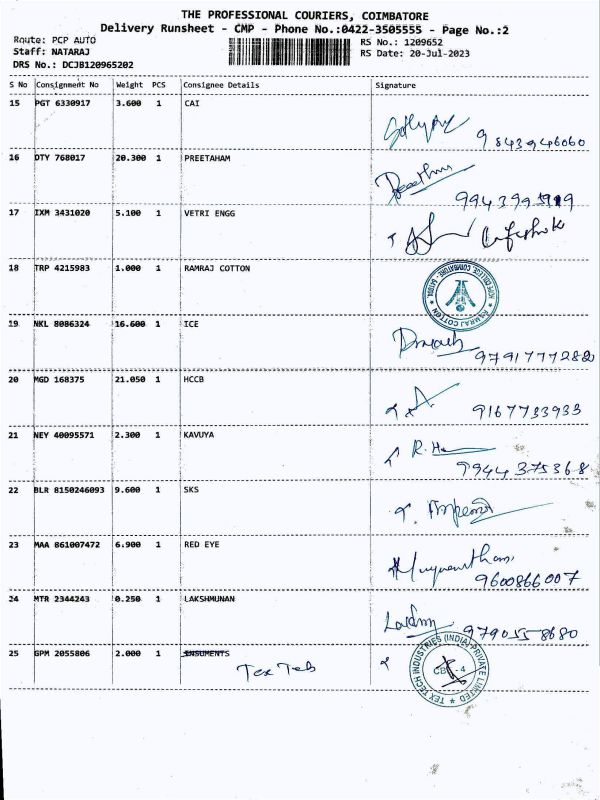 THE PROFESSIONAL COURIERS, COIMBATORE
Delivery Runsheet - CMP - Phone No.:0422-3505555 - Page No.:2
Route: PCP AUTO RS No.: 1209652
Staff: NATARAJ RS Date: 20-Jul-2023
DRS No.: DCJB120965202
S No Consignment No Weight PCS Consignee Details Signature
15 PGT 6330917 3.600 1 CAI
9843946060
16 DTY 768017 20.300 1 PREETAHAM
17 IXM 3431020 5.100 1 VETRI ENGG
18 TRP 4215983 1.000 1 RAMRAJ COTTON
RAMRAJ COTTON
19 NKL 8086324 16.600 1 ICE
20 MGD 168375 21.050 1 HCCB
9167733933
21 NEY 40095571 2.300 1 KAVUYA
9944375368
22 BLR 8150246093 9.600 1 SKS
23 MAA 861007472 6.900 1 RED EYE
9600866007
24 MTR 2344243 0.250 1 LAKSHMUNAN
9790558680
25 GPM 2055806 2.000 1
Tex Teb
TEX TECH INDUSTRIES (INDIA) PRIVATE LIMITED